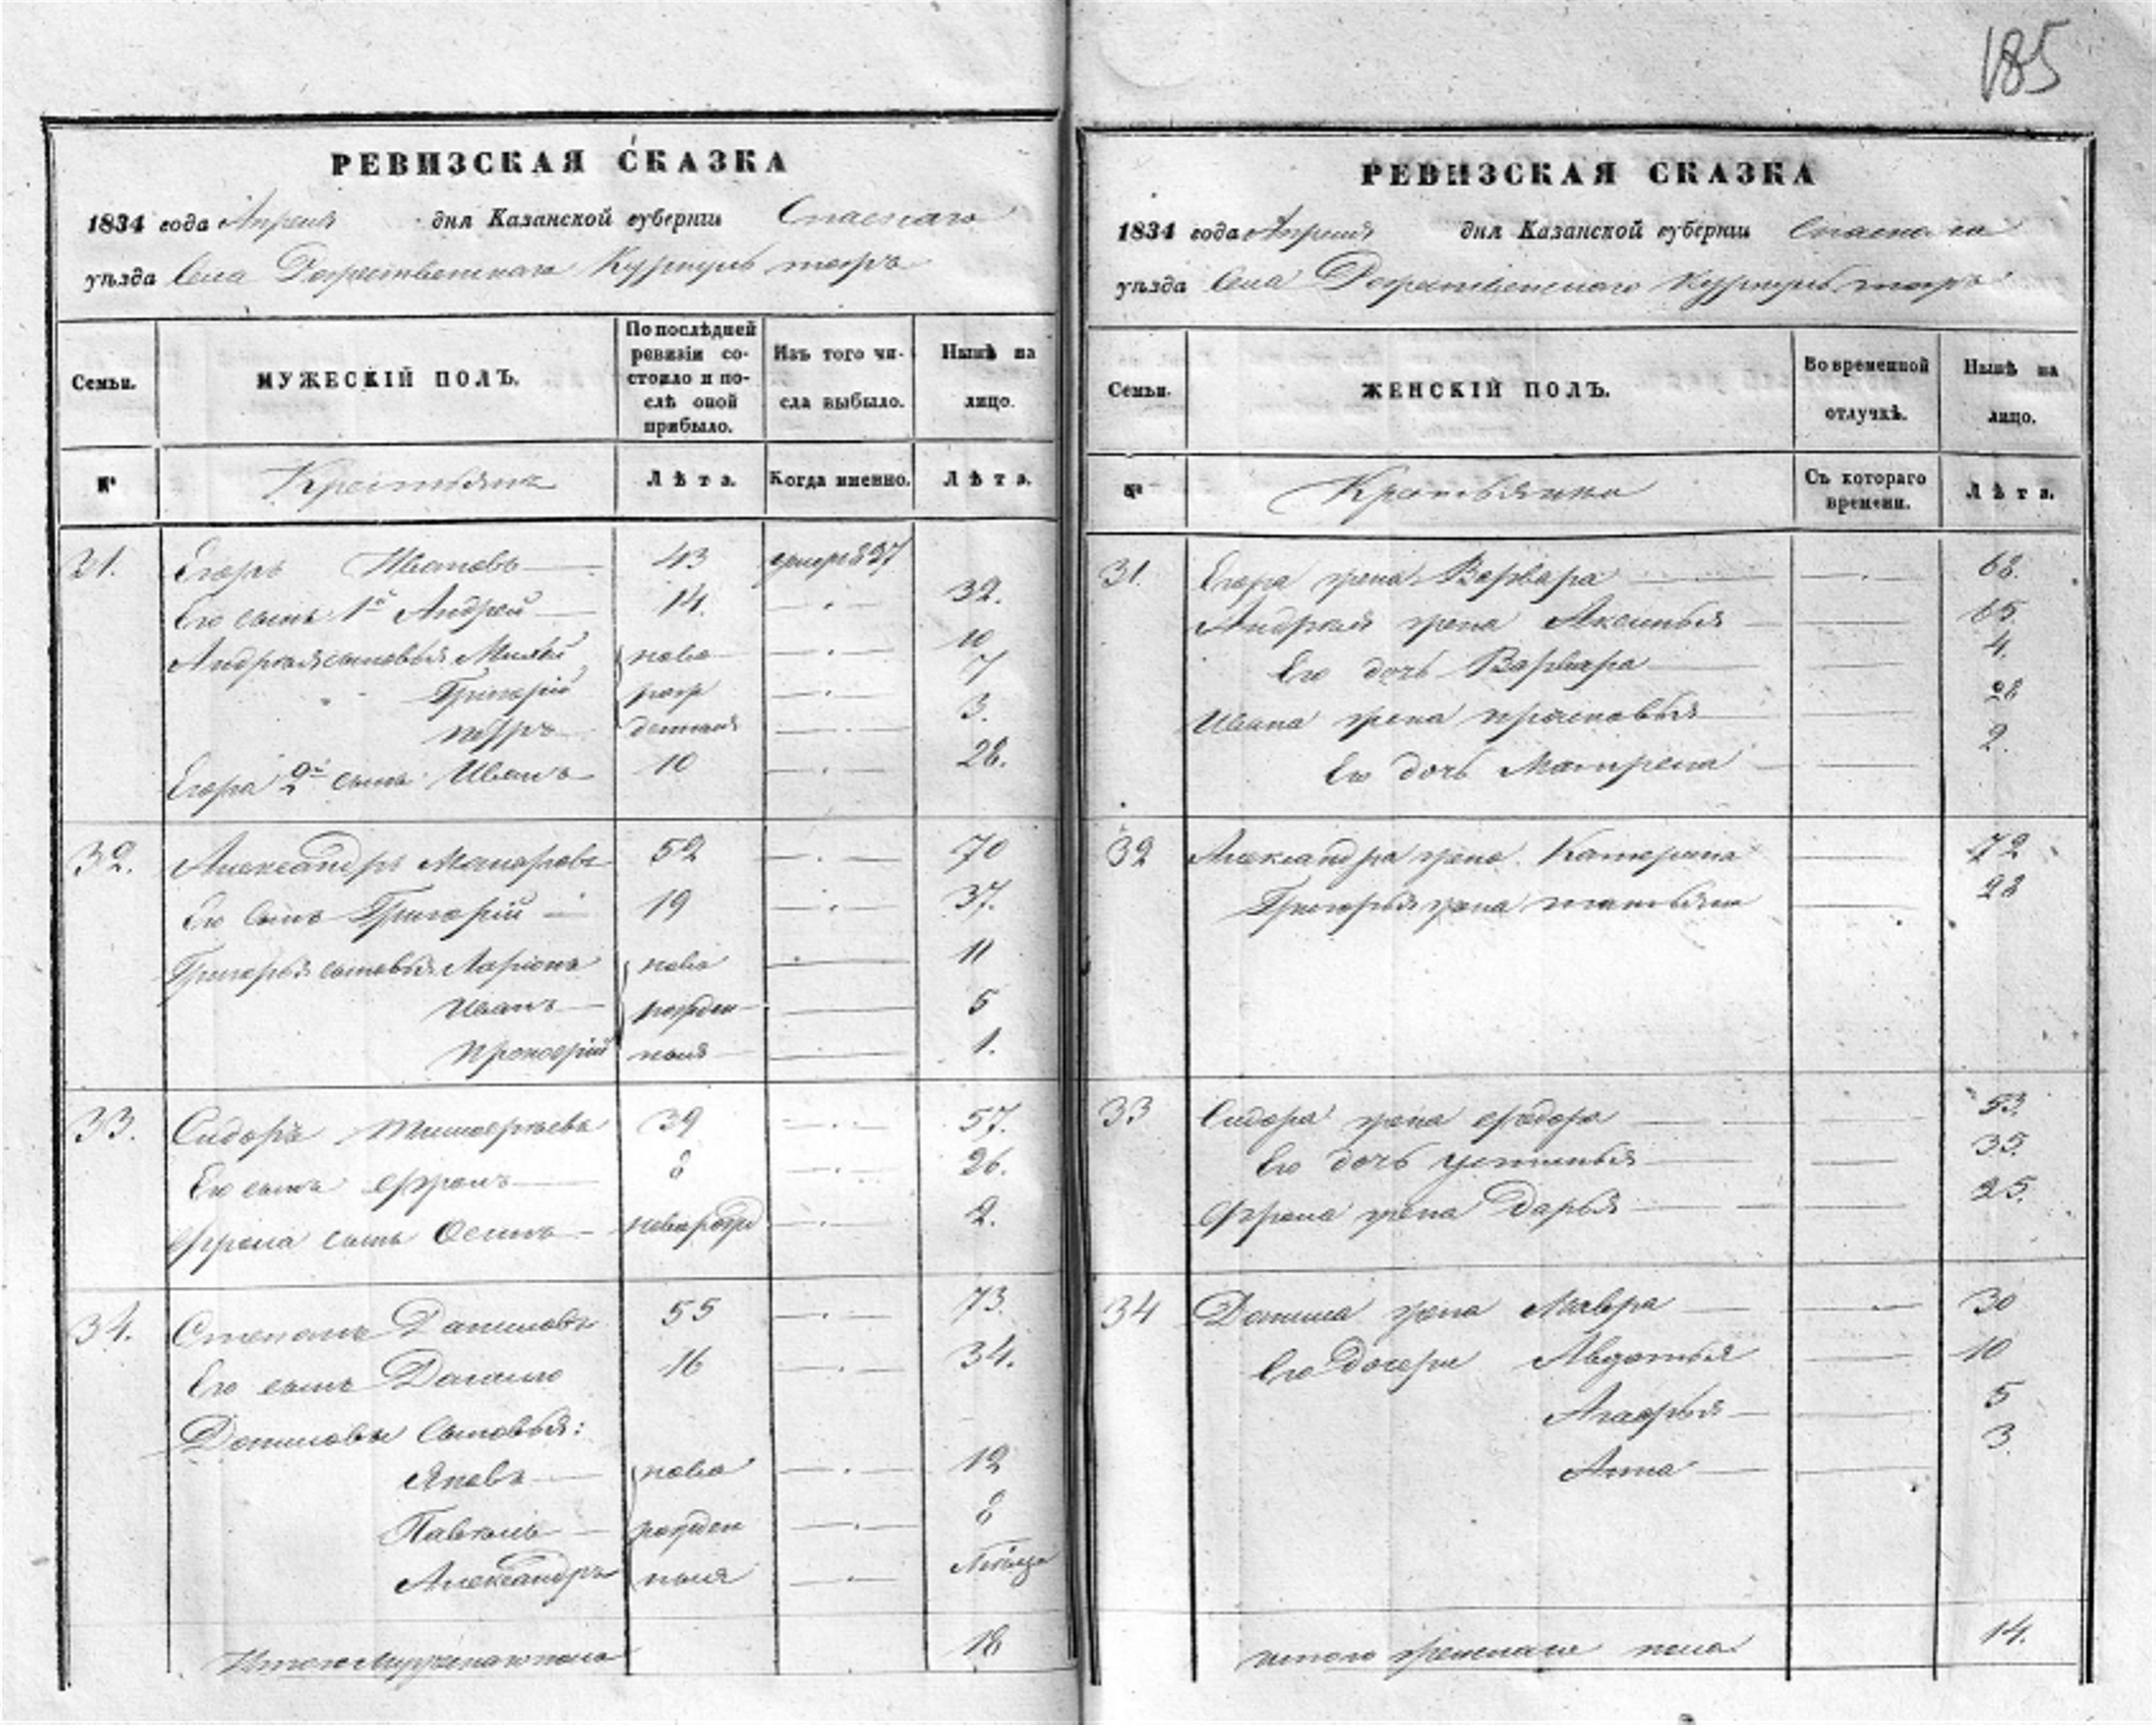 185
РЕВИЗСКАЯ СКАЗКА
1834 года Апреля дня Казанской губернии Спаскаго
уѣзда Села Рожественскаго
Семьи.
МУЖЕСКІЙ ПОЛЪ.
По послѣдней ревизіи состояло и послѣ оной прибыло.
Изъ того числа выбыло.
Нынѣ на лицо.
№
Крестьяне
Лѣта.
Когда именно.
Лѣта.
Егоръ Ивановъ 43 827
Его сынъ 1й Андрей 14. 32.
Андрея сыновья ново 10
Григорій рож 7
Петръ денныя 3.
Егора 2й сынъ Иванъ 10 28.
32. Александръ 52 70
Его сынъ Григорій 19 37.
Григорья сыновья Ларіонъ ново 11
Иванъ рожден 5
Прокофій ныя 1.
33. Сидоръ Тимофѣевъ 39 57.
Его сынъ Ефремъ 8 26.
Ефрема сынъ Осипъ новорожд 2.
34. Степанъ Даниловъ 55 73.
Его сынъ Данило 16 34.
Даниловы сыновья:
Яковъ ново 12
Павелъ рожден 8
Александръ ныя
Итого мужескаго пола 18
РЕВИЗСКАЯ СКАЗКА
1834 года Апреля дня Казанской губернии Спаскаго
уѣзда Села Рожественскаго
Семьи.
ЖЕНСКІЙ ПОЛЪ.
Во временной отлучкѣ.
Нынѣ на лицо.
№
Съ котораго времени.
Лѣта.
31. Егора жена Варвара 68.
Андрея жена Аксинья
Его дочь Варвара 4.
Ивана жена Прасковья 28
Его дочь Матрена 2.
32 Александра жена Катерина 72
Григорья жена Татьяна 28
33 Сидора жена Федора 53.
Его дочь Устинья 35.
Ефрема жена Дарья 25.
34 Данила жена Мавра 30
Его дочери Авдотья 10
Агафья 5
Анна 3.
итого женскаго пола 14.